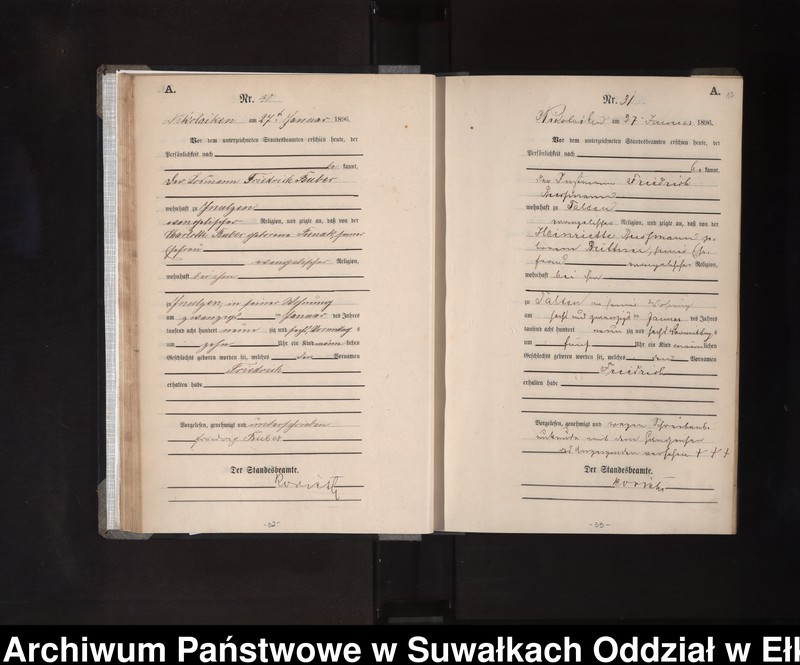 A.
Nr. 30
Nikolaiken am 27ten Januar 1896.
Vor dem unterzeichneten Standesbeamten erschien heute, der
Persönlichkeit nach
be kannt,
der Friedrich Kuber
wohnhaft zu
evangelischer Religion, und zeigte an, daß von der
Charlotte Kuber geborene seiner
Ehefrau
evangelischer Religion,
wohnhaft bei ihm
zu in seiner Wohnung
am ten Januar des Jahres
tausend acht hundert neun zig und sechs Vormittag s
um zehn Uhr ein Kind männlichen
Geschlechts geboren worden sei, welches den Vornamen
Friedrich
erhalten habe
Vorgelesen, genehmigt und unterschrieben
Kuber
Der Standesbeamte.
-32-
A.
Nr. 31
Nikolaiken am 27 Januar 1896.
Vor dem unterzeichneten Standesbeamten erschien heute, der
Persönlichkeit nach
be kannt,
der Friedrich
wohnhaft zu Talten
evangelischer Religion, und zeigte an, daß von der
Henriette ge-
borenen seiner Ehe-
frau evangelischer Religion,
wohnhaft bei ihm
zu Talten in seiner Wohnung
am sechs und zwanzigsten Januar des Jahres
tausend acht hundert neun zig und sechs Nachmittag s
um fünf Uhr ein Kind männlichen
Geschlechts geboren worden sei, welches den Vornamen
Friedrich
erhalten habe
Vorgelesen, genehmigt und wegen Schreibens-
unkunde mit dem Handzeichen
des Anzeigenden versehen + + +
Der Standesbeamte.
-33-
Archiwum Państwowe w Suwałkach Oddział w Ełk